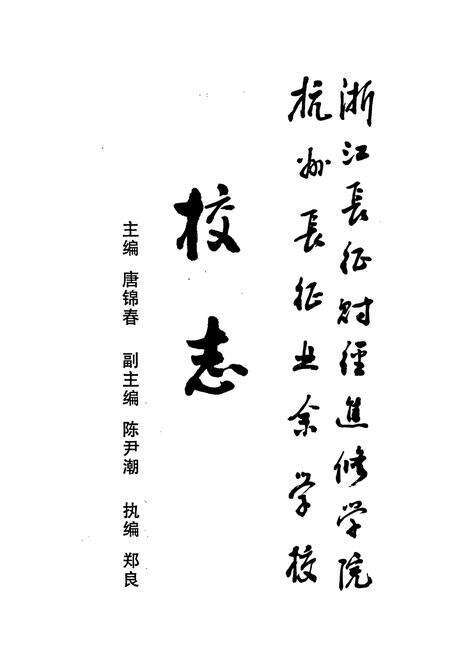 浙江長征财經進修学院
杭州長征业余学校
校志
主编 唐锦春 副主编 陈尹潮 执编 郑良